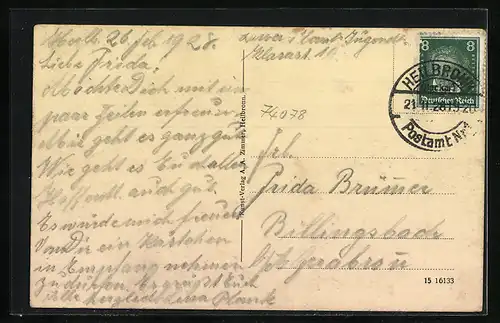 Heilb. 26. Feb. 1928.
Liebe Frida!
Möchte Dich mit ein
paar Zeilen erfreuen.
Mir geht es ganz gut.
Wie geht es Euch allen
Hoffentl. auch gut.
Es würde mich freuen
Von Dir ein Kärtchen
in Empfang nehmen
zu dürfen. Es grüßt Euch
alle herzlichst Luise Plank
Luise Plank, Jugendh.
Klarastr. 10
74078
Kunst-Verlag A. A. Zimmer, Heilbronn.
8 8
Deutsches Reich
HEILBRONN
Postamt Nr.
Frl.
Frida Brümer
Billingsbach
Gerabronn
15 16133